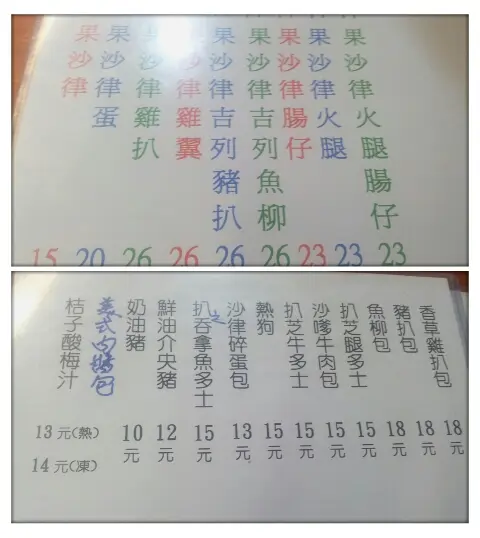 果沙律火腿腸仔 23
果沙律火腿 23
果沙律腸仔 23
果沙律吉列魚柳 26
果沙律吉列豬扒 26
果沙律雞翼 26
沙律雞扒 26
果沙律蛋 20
果沙律 15
香草雞扒包 18元
豬扒包 18元
魚柳包 18元
扒芝腿多士 15元
沙嗲牛肉包 15元
扒芝牛多士 15元
熱狗 15元
沙律碎蛋包 13元
扒之吞拿魚多士 15元
鮮油介央豬 12元
奶油豬 10元
美式肉包
桔子酸梅汁 13元(熱)
14元(凍)